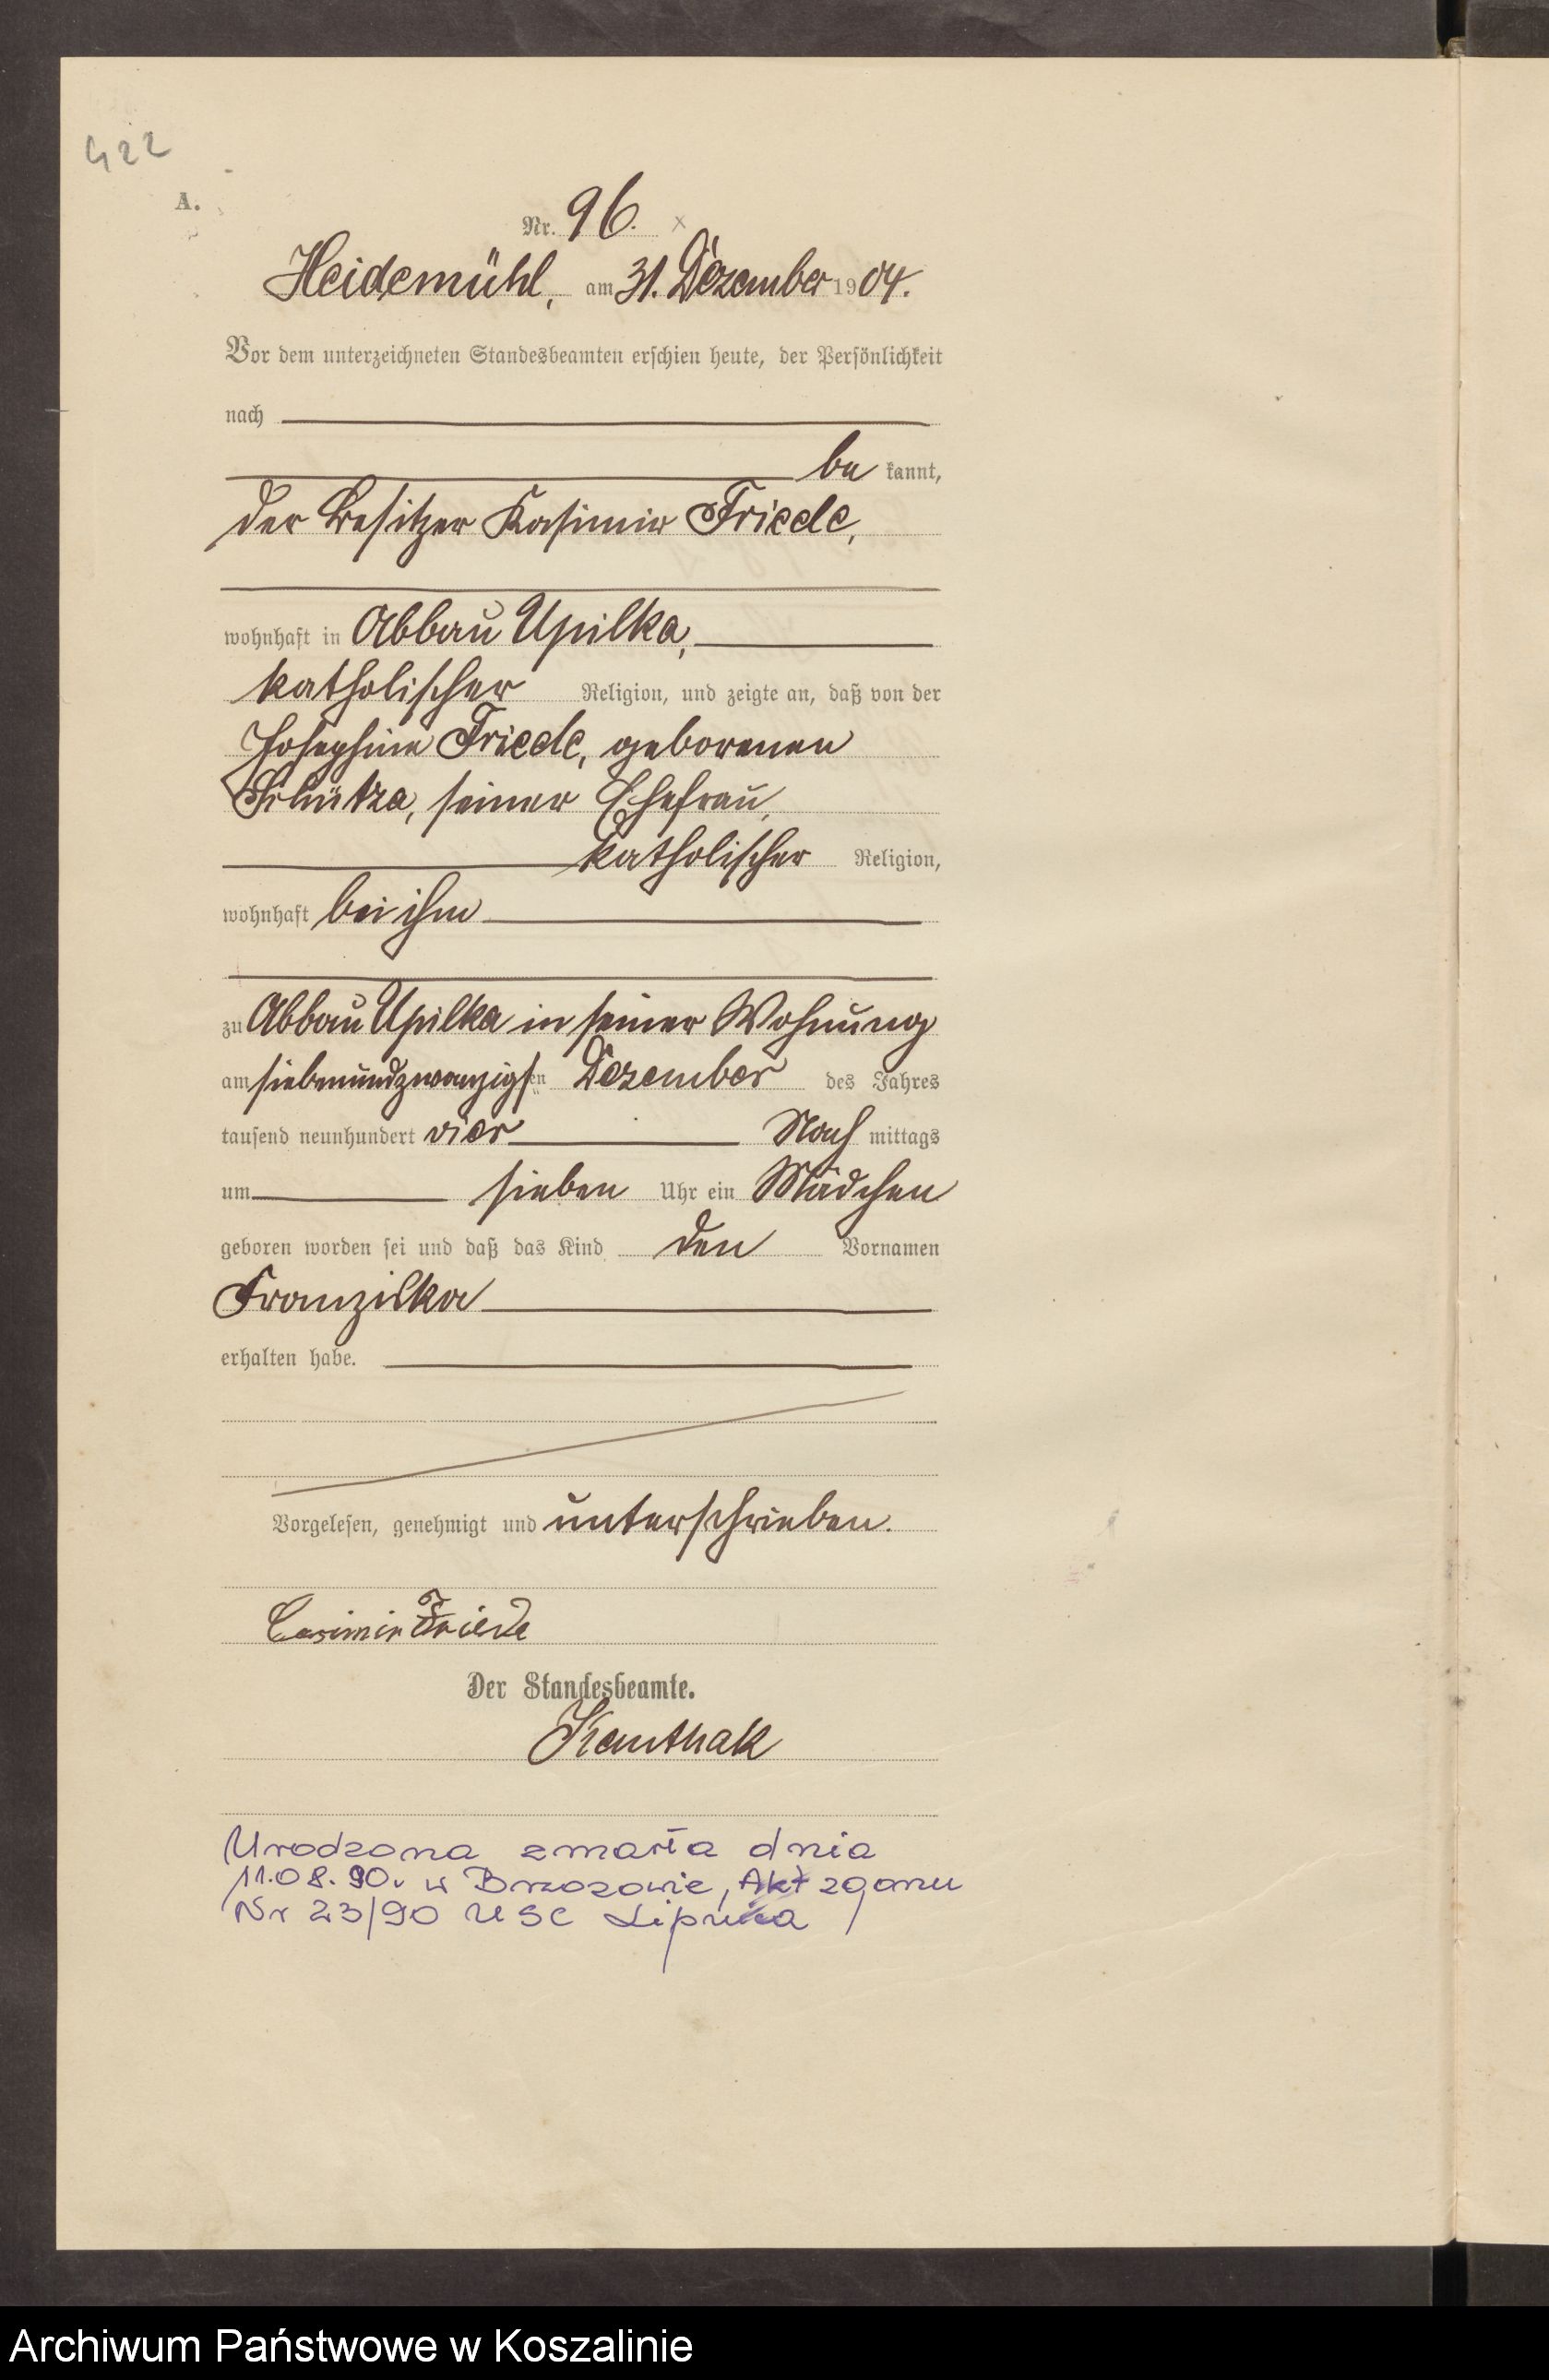 422
A.
Nr. 96.
Heidemühl, am 31. Dezember 1904.
Vor dem unterzeichneten Standesbeamten erschien heute, der Persönlichkeit
nach
be kannt,
der Besitzer Kasimir Friede,
wohnhaft in Abbau Upilka,
katholischer Religion, und zeigte an, daß von der
Josephine Friede, geborenen
Schütza, seiner Ehefrau,
katholischer Religion,
wohnhaft bei ihm
zu Abbau Upilka in seiner Wohnung
am siebenundzwanzigsten Dezember des Jahres
tausend neunhundert vier Nach mittags
um sieben Uhr ein Mädchen
geboren worden sei und daß das Kind den Vornamen
Franziska
erhalten habe.
Vorgelesen, genehmigt und unterschrieben.
Casimir Friede
Der Standesbeamte.
Kanthak
Urodzona zmarła dnia
11.08.90r w Brzozowie, Akt zgonu
Nr 23/90 USC Lipnica
Archiwum Państwowe w Koszalinie